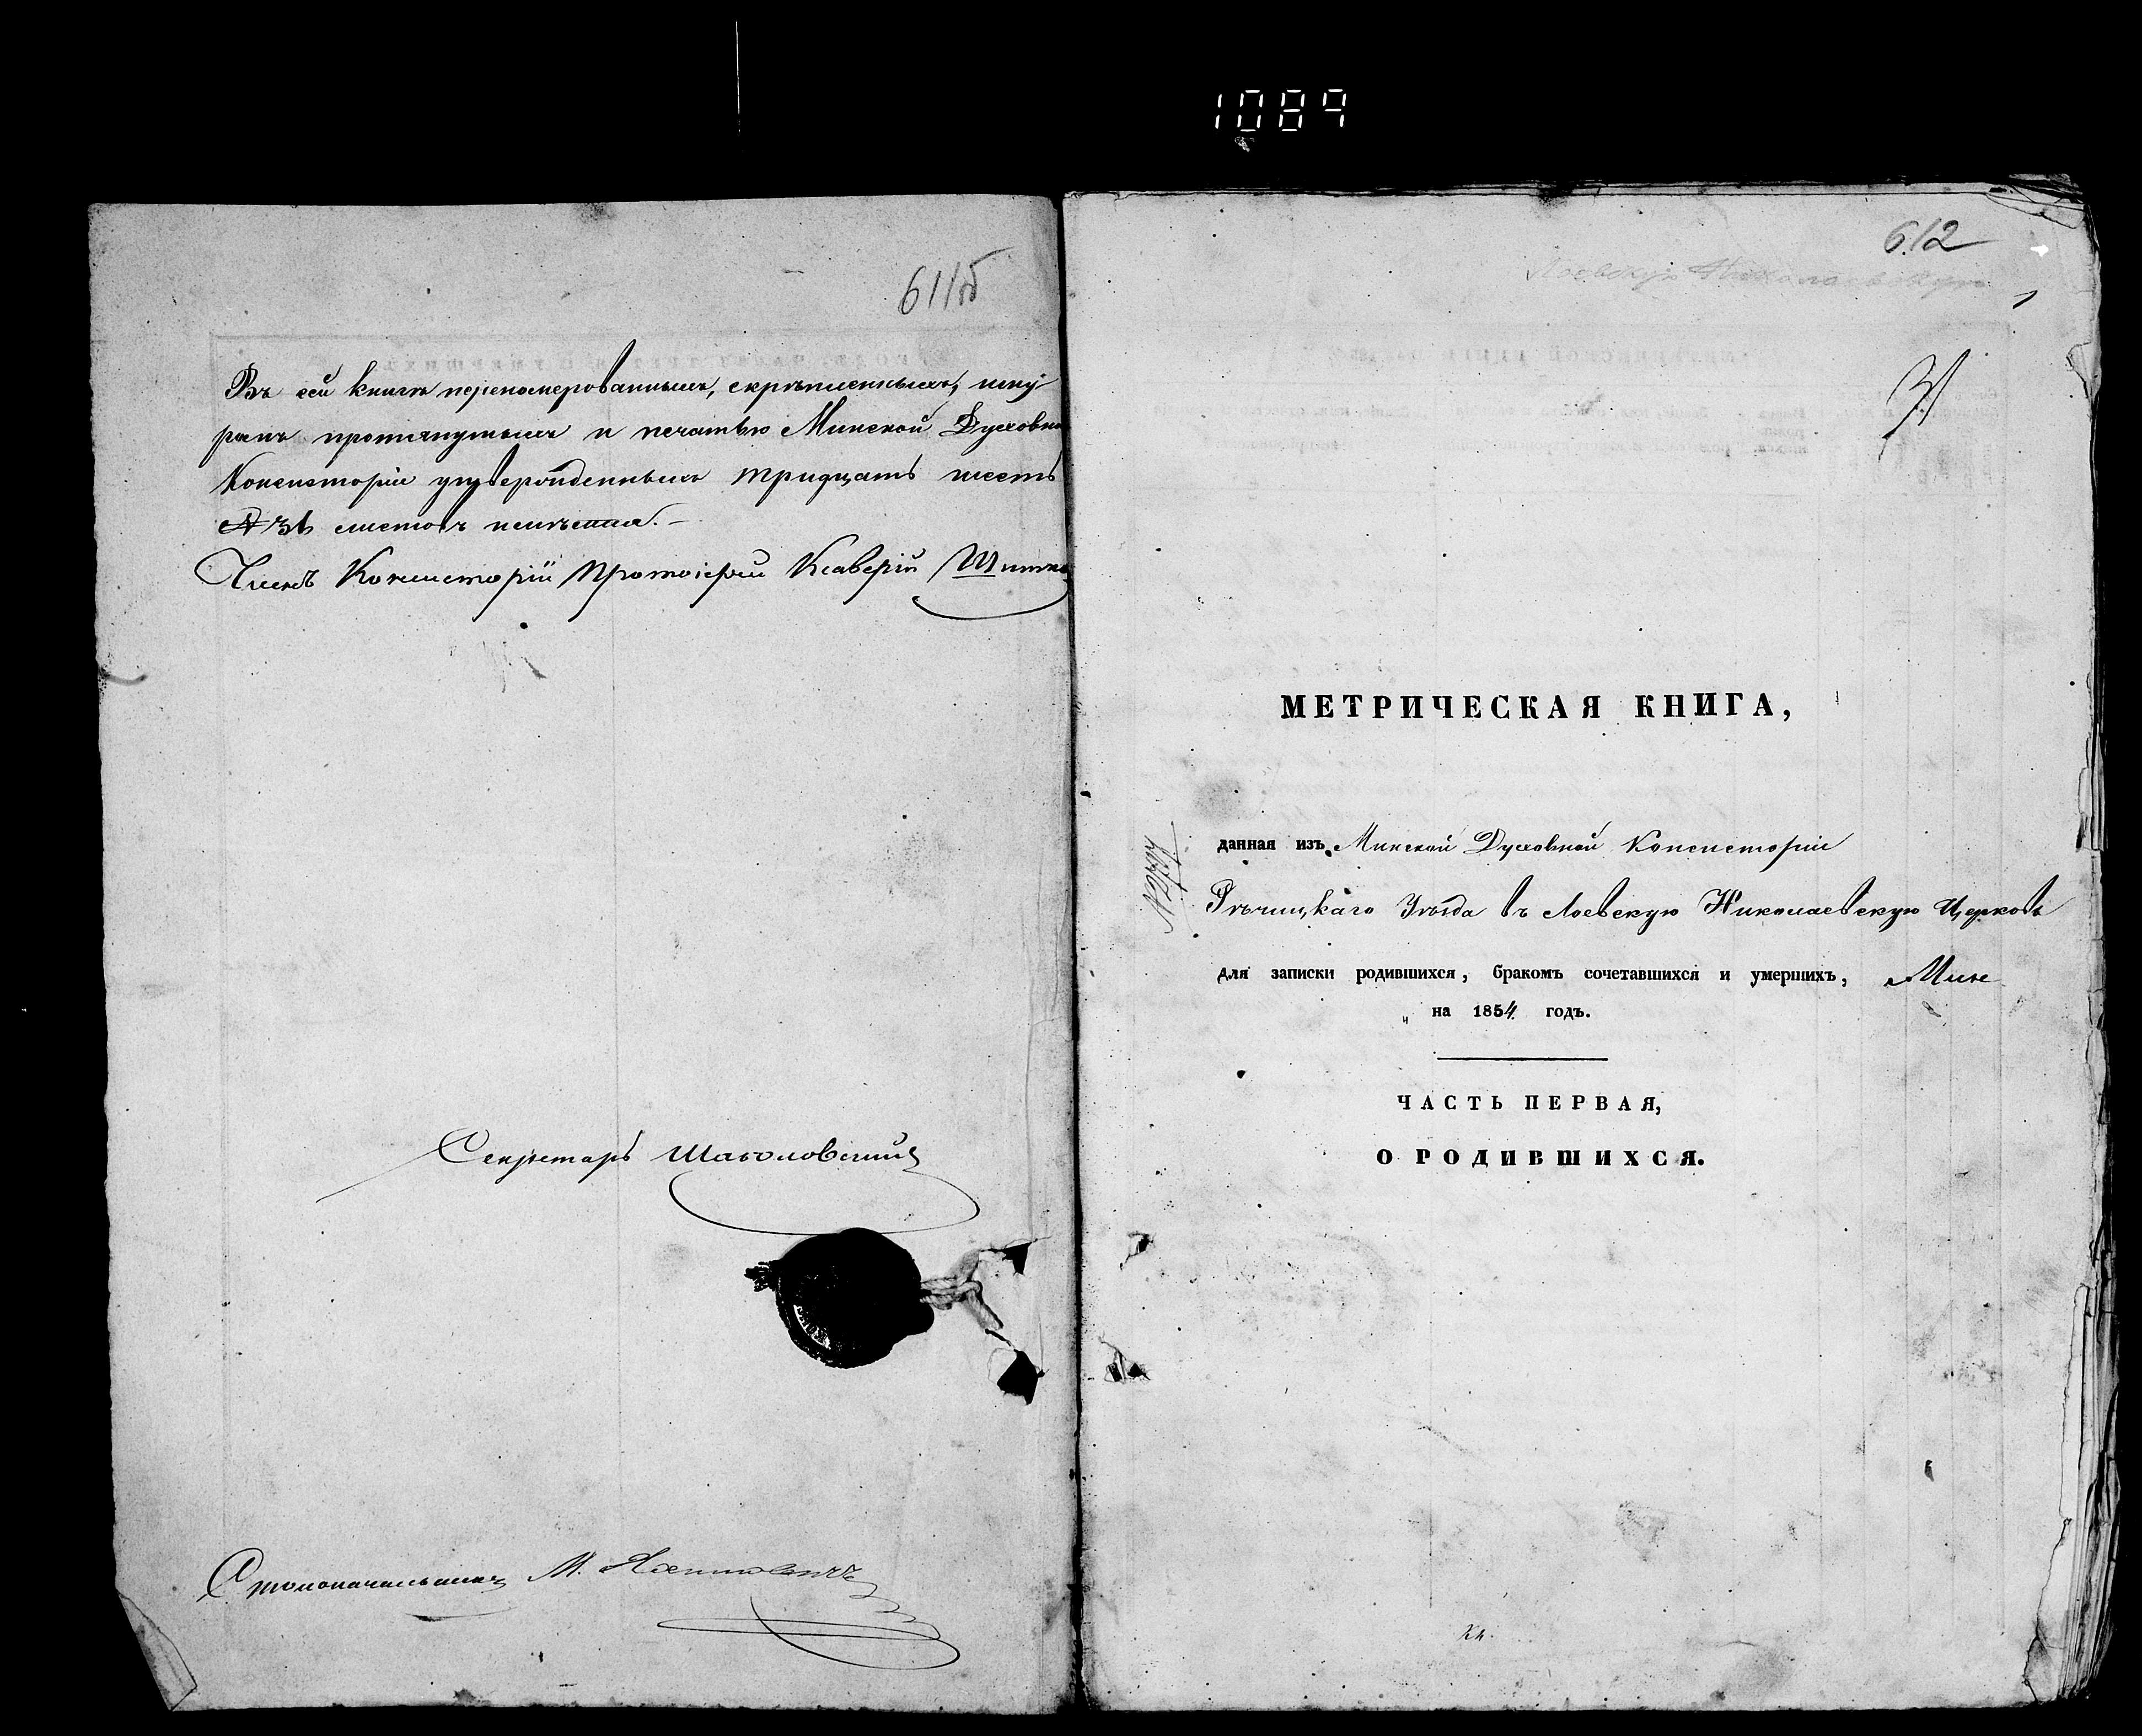 1089
611об
Въ сей книгѣ перенумерованныхъ, скрѣпленныхъ, шну-
ромъ протянутыхъ и печатью Минской Духовно
Консисторіи утвержденныхъ тридцать шесть
36 листовъ
Членъ Консисторіи Протоіерей Ксаверій
Секретарь
Столоначальникъ М.
612
Лоевскую Николаевскую
1
МЕТРИЧЕСКАЯ КНИГА,
данная изъ Минской Духовной Консисторіи
Рѣчицкаго Уѣзда въ Лоевскую Николаевскую Церковь
для записки родившихся, бракомъ сочетавшихся и умершихъ,
на 1854 годъ.
ЧАСТЬ ПЕРВАЯ,
О РОДИВШИХСЯ.